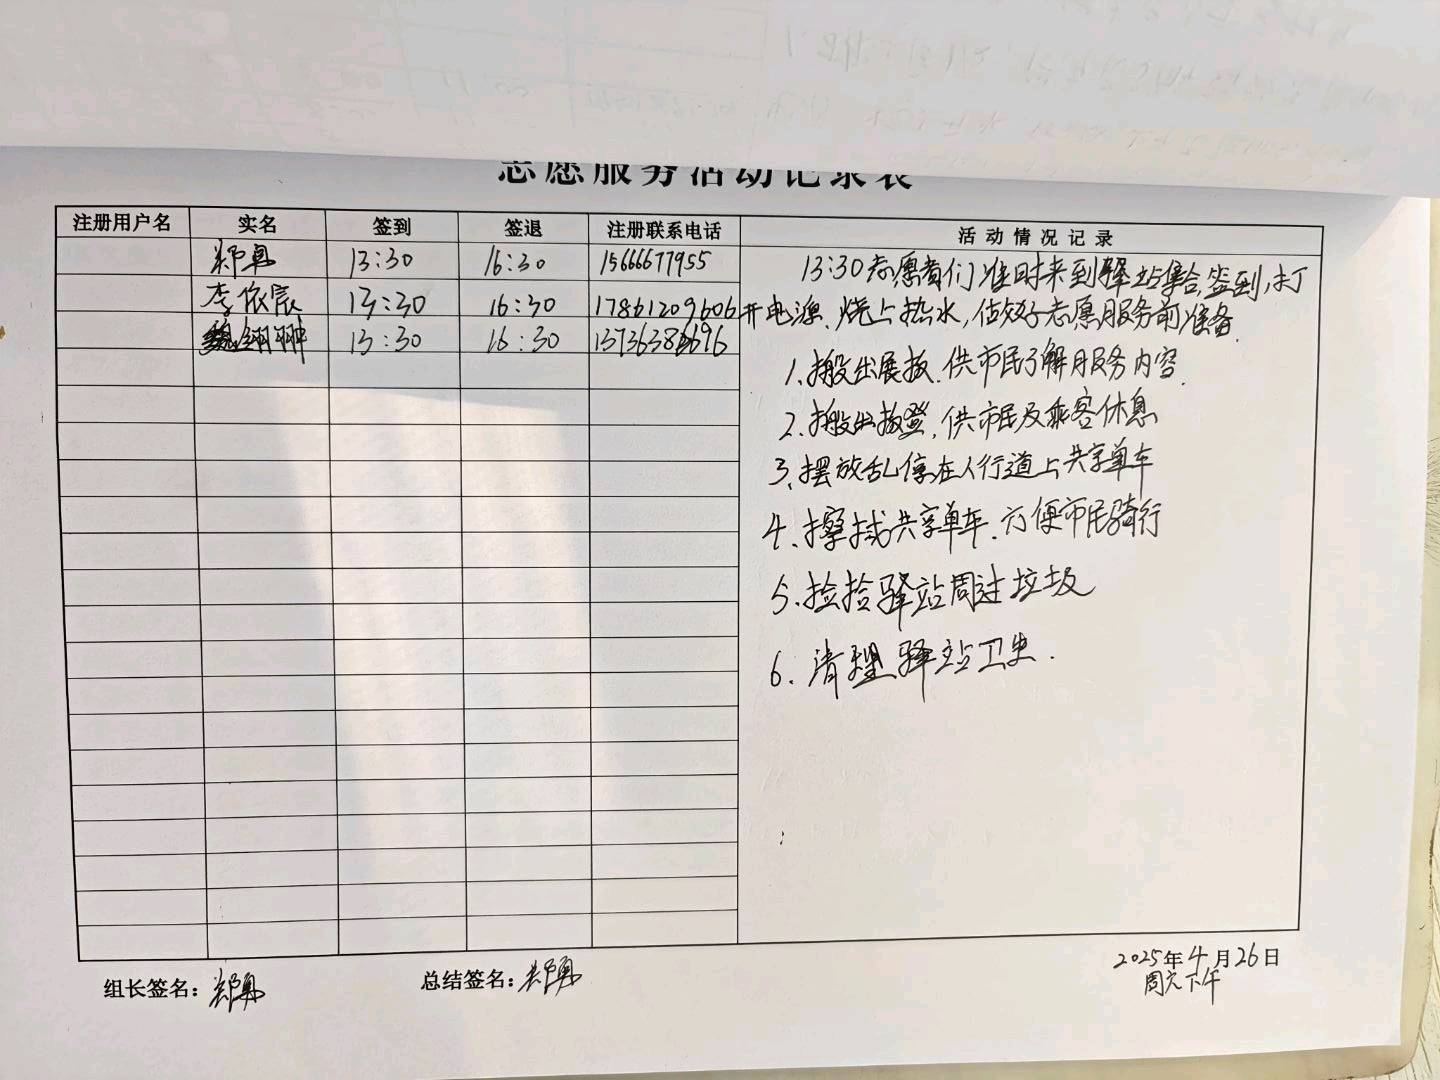 志愿服务活动记录表
注册用户名 实名 签到 签退 注册联系电话 活动情况记录
郑勇 13:30 16:30 15666677955
李依宸 13:30 16:30 17861209606
魏翊翀 13:30 16:30
13:30志愿者们准时来到驿站集合,签到,打
开电源、烧上热水,做好志愿服务前准备.
1、搬出展板.供市民了解服务内容.
2、搬出板凳,供市民及乘客休息
3、摆放乱停在人行道上共享单车
4、擦拭共享单车.方便市民骑行
5、捡拾驿站周边垃圾
6.清理驿站卫生.
组长签名:郑勇 总结签名:郑勇
2025年4月26日
周六下午